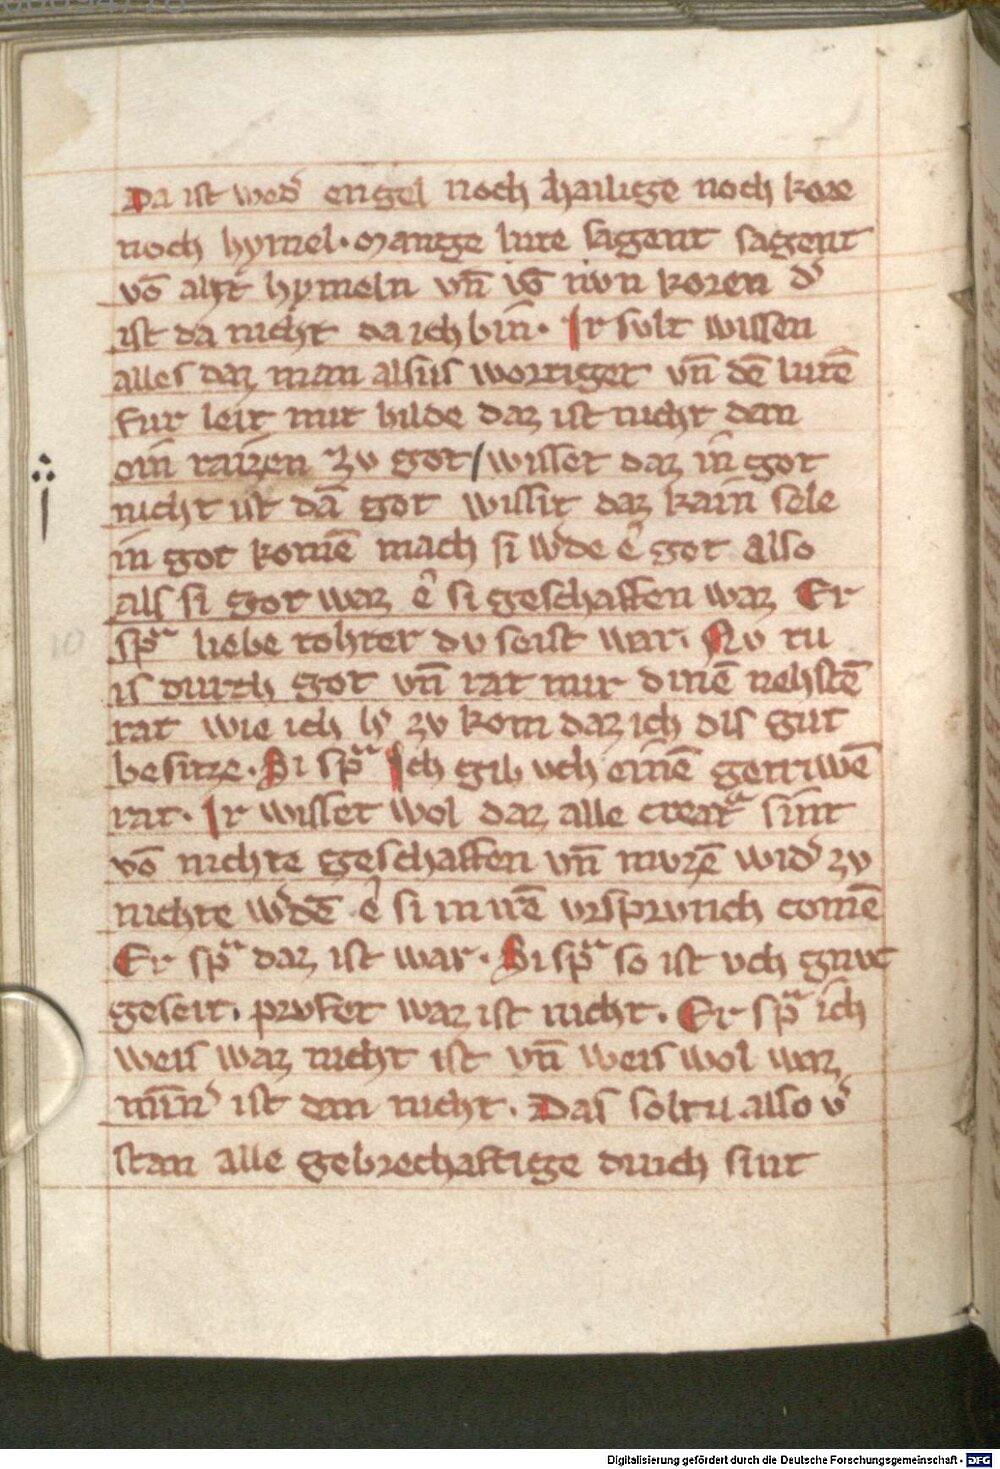 Da ist wed᷎ engel noch hailige noch kore
noch hymel · Mange lute sagent sagent
vō aht hymeln vn̄ vō nvn koren d᷎
ist da nicht da ich bin · Ir sult wissen
alles daz man alsus wortiget vn̄ dē lutē
fur leit mit bilde daz ist nicht dan
ein raizen zv got / wisset daz in got
nicht ist dā got wissit daz kain sele
in got komē mach si w᷎de ê got also
als si got waz ê si geschaffen waz Er
spͣ liebe tohter dv seist war · Nv tu
is durch got vn̄ rat mir dinē nehstē
rat wie ich h᷎ zv kom daz ich dis gut
besitze · Si spͣ Ich gib vch einē getriwē
rat · Ir wisset wol daz alle creatͣ sint
vō nichte geschaffen vn̄ mvzē wid᷎ zv
nichte w᷎dē ê si in irē vrsprvnch comē
Er spͣ daz ist war · Si spͣ so ist vch gnvc
geseit · prvfet waz ist nicht · Er spͣ ich
weis waz nicht ist vn̄ weis wol waz
mīn᷎ ist den nicht · Das soltu also v᷎
stan alle gebrechaftige dinch sint
Digitalisierung gefördert durch die Deutsche Forschungsgemeinschaft - DFG